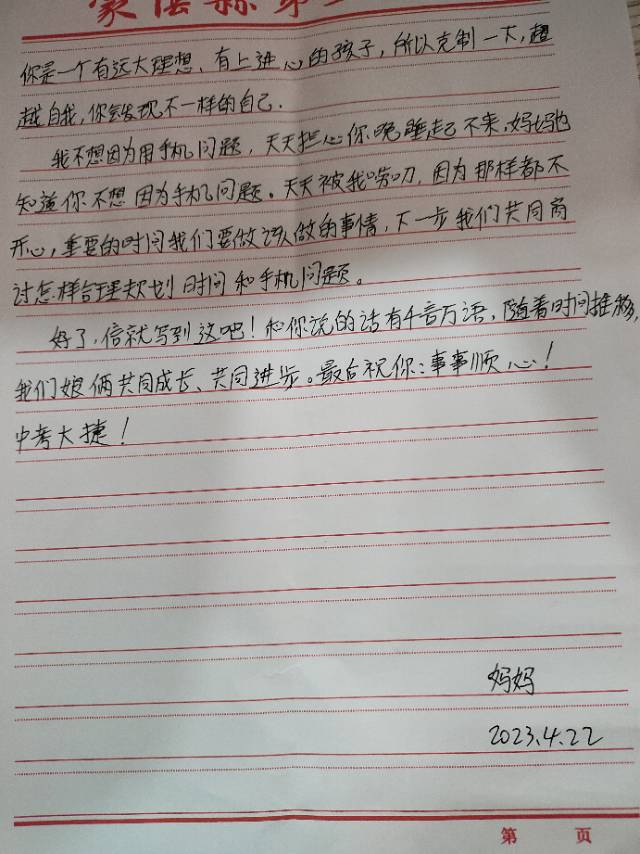 蒙阴县第
你是一个有远大理想、有上进心的孩子，所以克制一下，超
越自我，你会发现不一样的自己．
我不想因为用手机问题，天天担心你晚睡起不来，妈妈也
知道你不想因为手机问题。天天被我唠叨，因为那样都不
开心，重要的时间我们要做该做的事情，下一步我们共同商
讨怎样合理规划时间和手机问题。
好了，信就写到这吧！和你说的话有千言万语，随着时间推移，
我们娘俩共同成长、共同进步。最后祝你：事事顺心！
中考大捷！
妈妈
2023.4.22
第 页